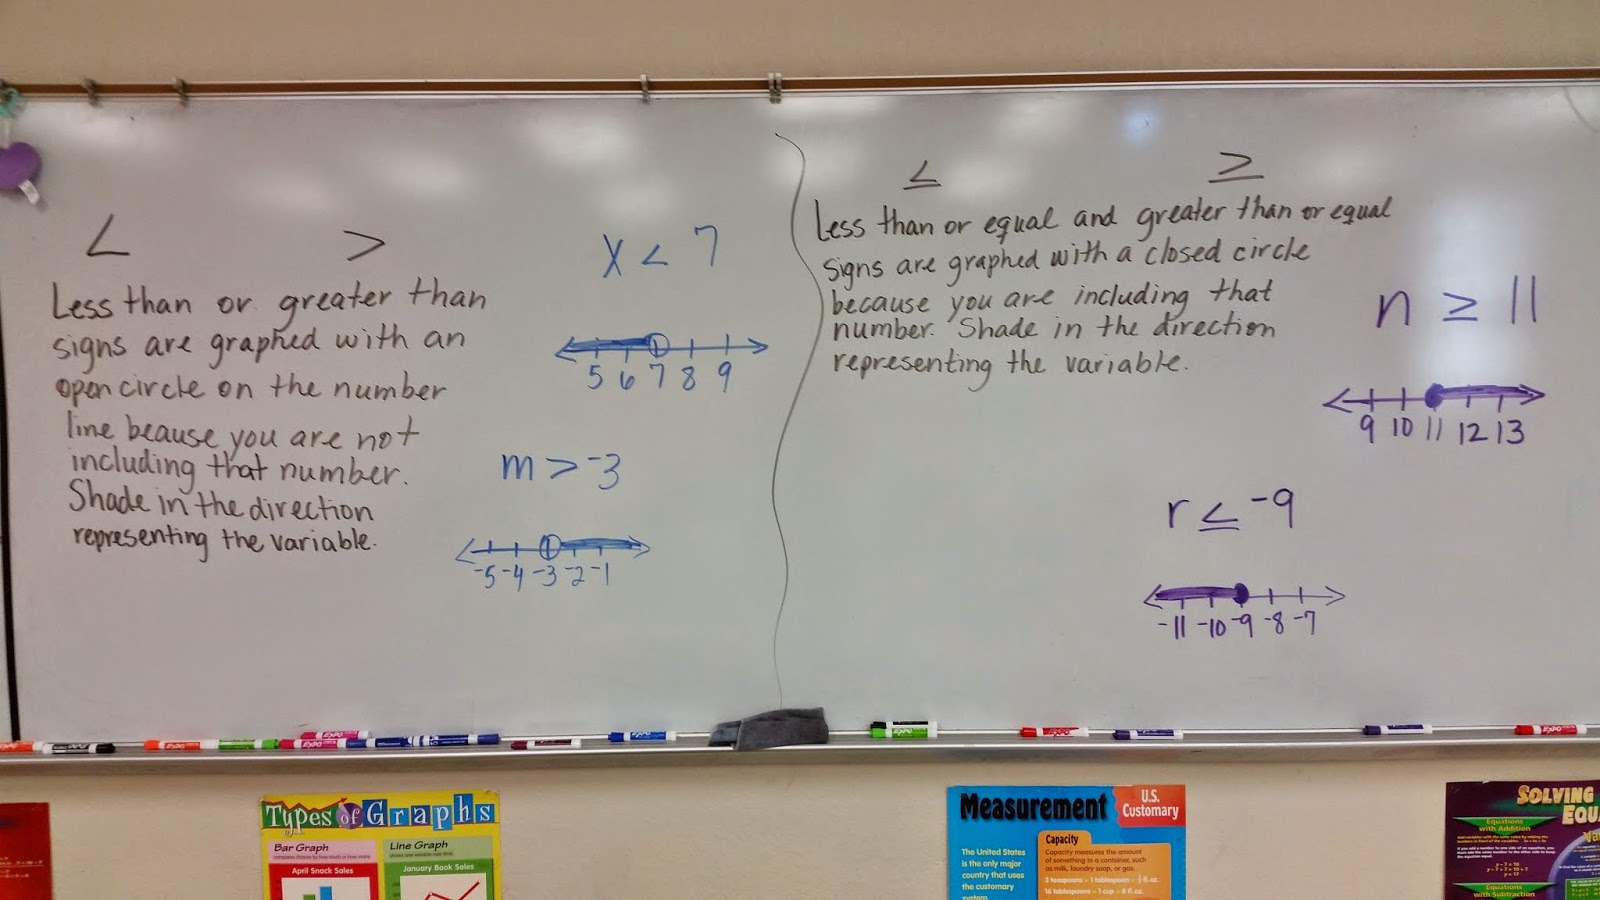 < >
Less than or greater than
signs are graphed with an
open circle on the number
line beause you are not
including that number.
Shade in the direction
representing the variable.
X < 7
5 6 7 8 9
m > -3
-5 -4 -3 -2 -1
≤ ≥
Less than or equal and greater than or equal
signs are graphed with a closed circle
because you are including that
number. Shade in the direction
representing the variable.
n ≥ 11
9 10 11 12 13
r ≤ -9
-11 -10 -9 -8 -7
EXPO
EXPO
EXPO
EXPO
Types of Graphs
Bar Graph
April Snack Sales
Line Graph
January Book Sales
Measurement
U.S.
Customary
The United States
is the only major
country that uses
the customary
system
Capacity
Capacity measures the amount
of something in a container, such
as milk, laundry soap, or gas.
3 teaspoons = 1 tablespoon = ½ fl. oz.
16 tablespoons = 1 cup = 8 fl. oz.
SOLVING
EQU
Va
Equations
with Addition
y + 7 = 10
y = 17
Equations
with Subtraction